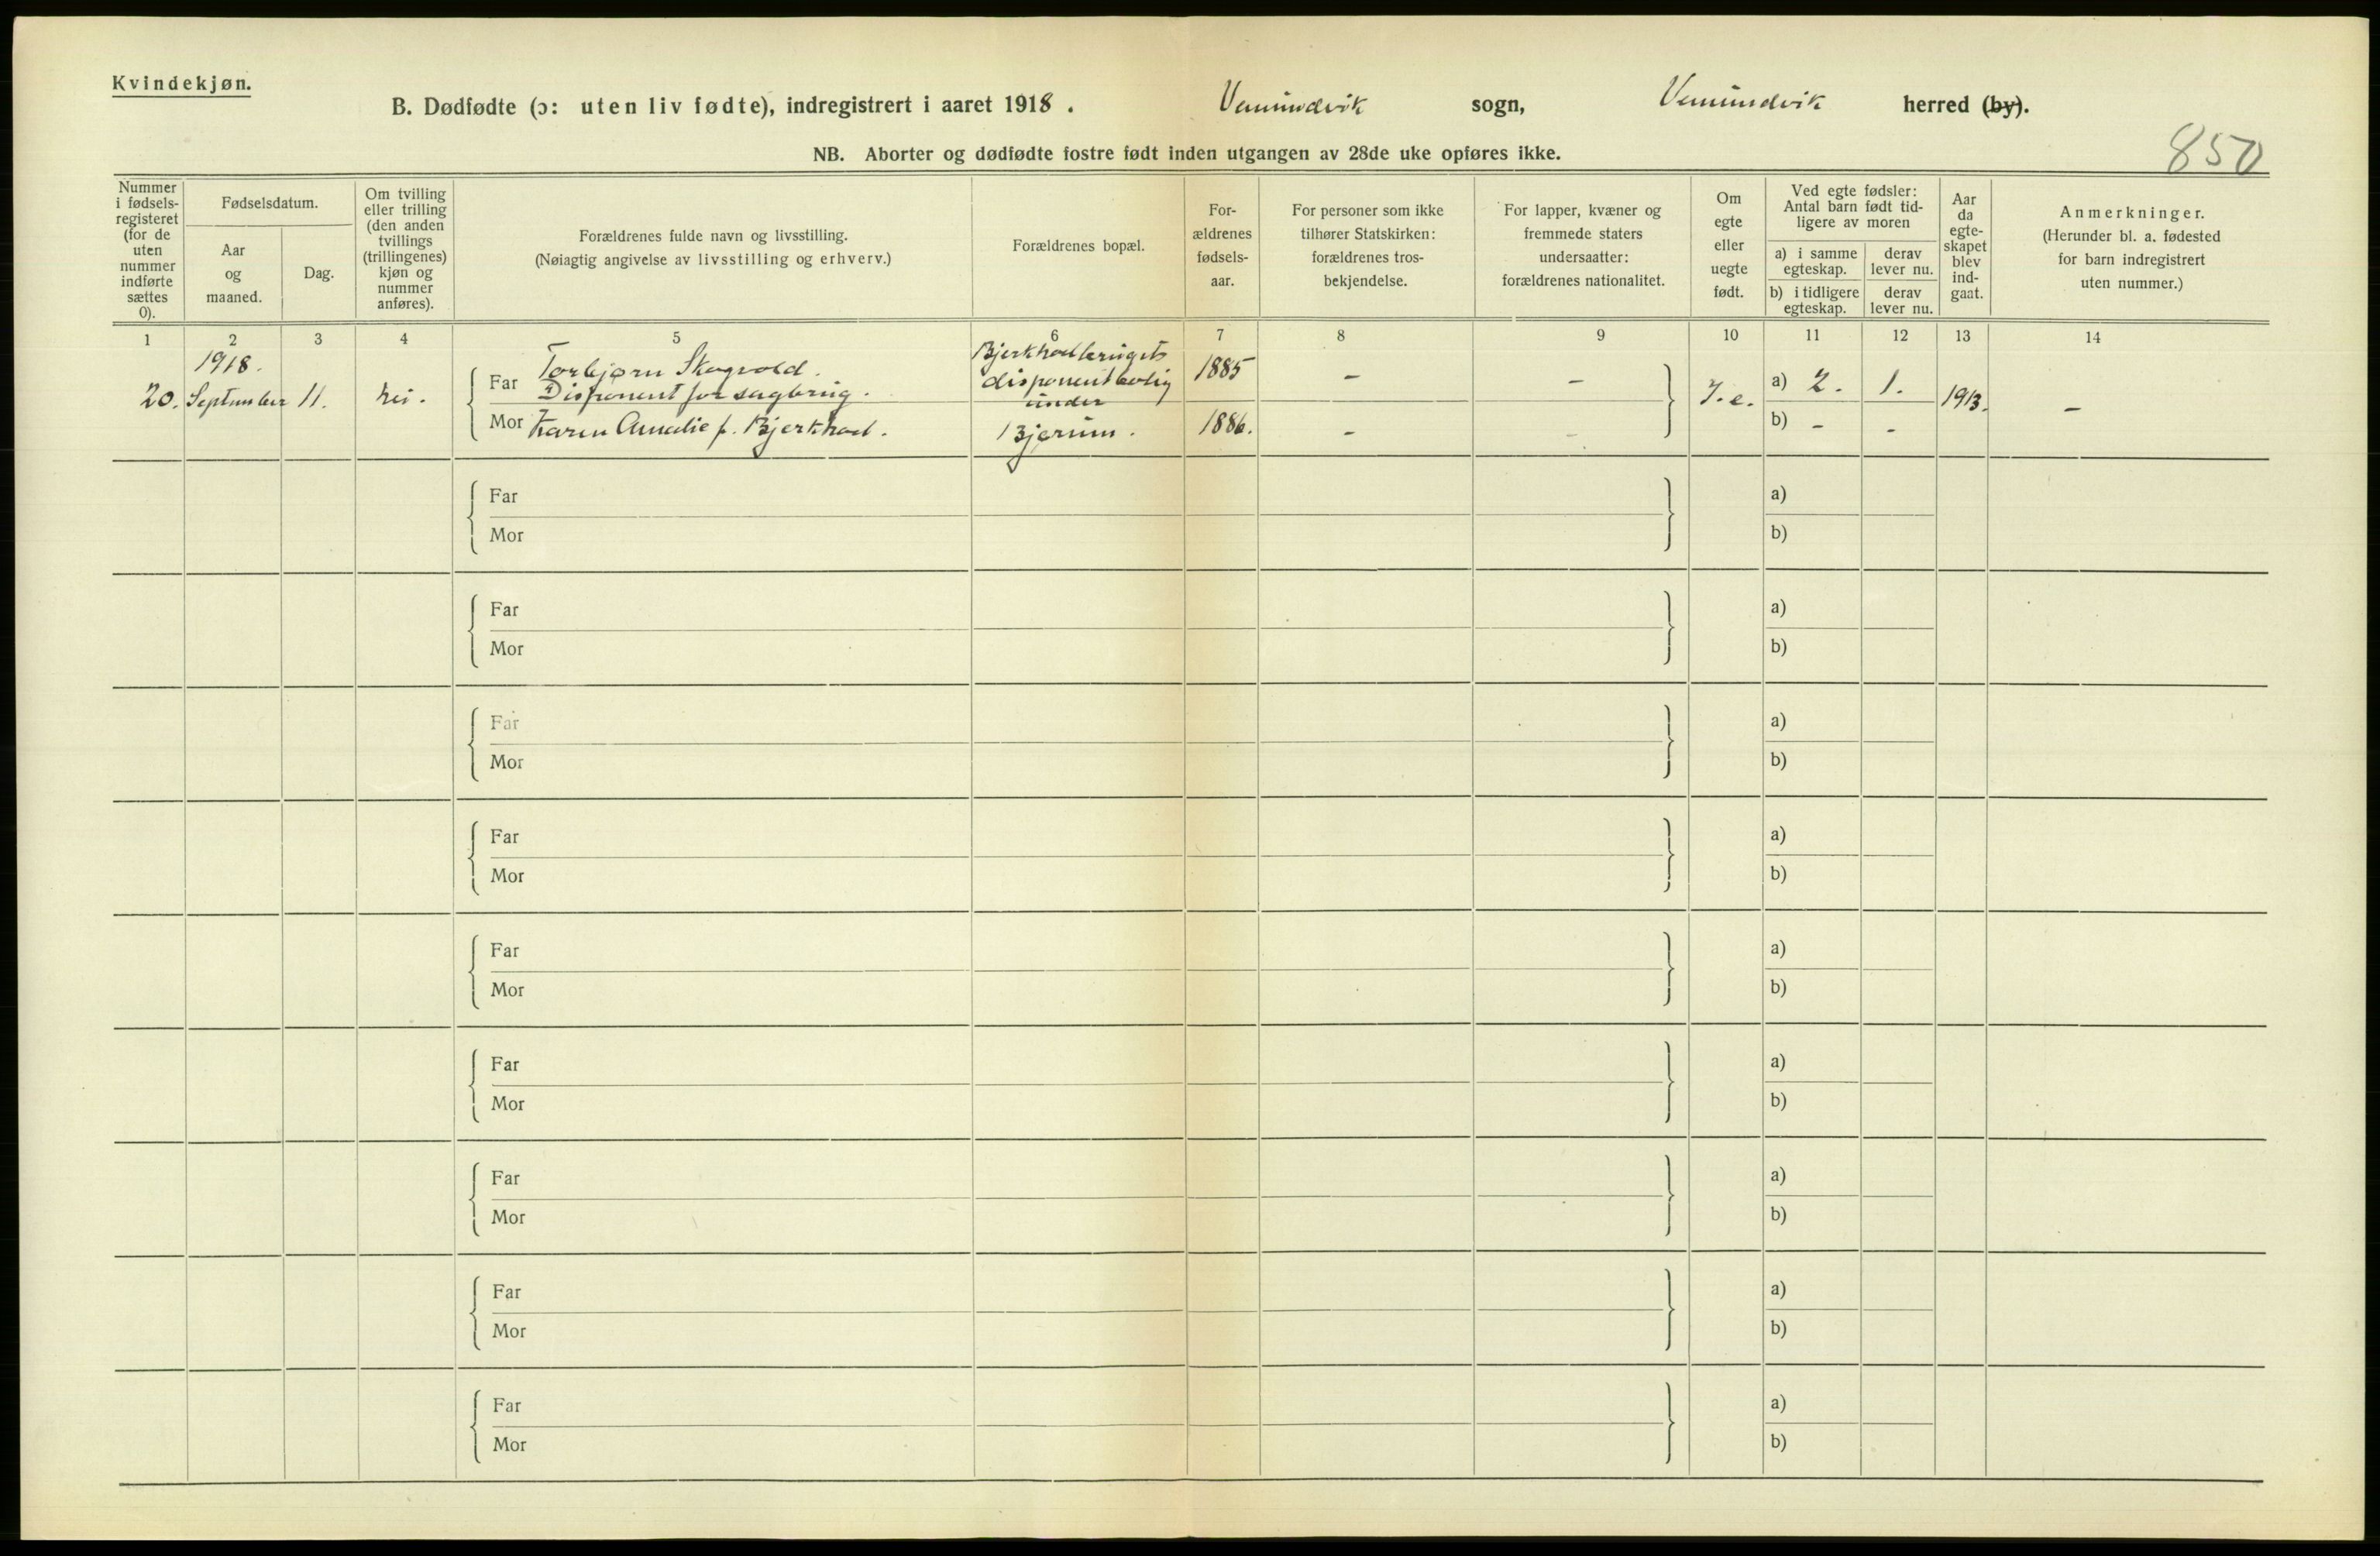 Kvindekjøn.
B. Dødfødte (ɔ: uten liv fødte), indregistrert i aaret 1918. Vemundvik sogn, Vemundvik herred (by).
NB. Aborter og dødfødte fostre født inden utgangen av 28de uke opføres ikke.
850
Nummer i fødsels-registeret (for de uten nummer indførte sættes 0).
Fødselsdatum.
Aar og maaned.
Dag.
Om tvilling eller trilling (den anden tvillings (trillingenes) kjøn og nummer anføres).
Forældrenes fulde navn og livsstilling.
(Nøiagtig angivelse av livsstilling og erhverv.)
Forældrenes bopæl.
For-ældrenes fødsels-aar.
For personer som ikke tilhører Statskirken: forældrenes tros-bekjendelse.
For lapper, kvæner og fremmede staters undersaatter: forældrenes nationalitet.
Om egte eller uegte født.
Ved egte fødsler: Antal barn født tid-ligere av moren
a) i samme egteskap.
derav lever nu.
b) i tidligere egteskap.
derav lever nu.
Aar da egte-skapet blev ind-gaat.
Anmerkninger.
(Herunder bl. a. fødested for barn indregistrert uten nummer.)
1 2 3 4 5 6 7 8 9 10 11 12 13 14
20. 1918. September 11. nei.
Far Torbjørn Skogvold. Disponent for sagbrug. 1885 - -
Mor Karen Amalie f. Bjerkhoel. 1886. - -
disponentbolig under Bjørum.
a) 2. 1. 1913. -
b) - -
Far a)
Mor b)
Far a)
Mor b)
Far a)
Mor b)
Far a)
Mor b)
Far a)
Mor b)
Far a)
Mor b)
Far a)
Mor b)
Far a)
Mor b)
Far a)
Mor b)